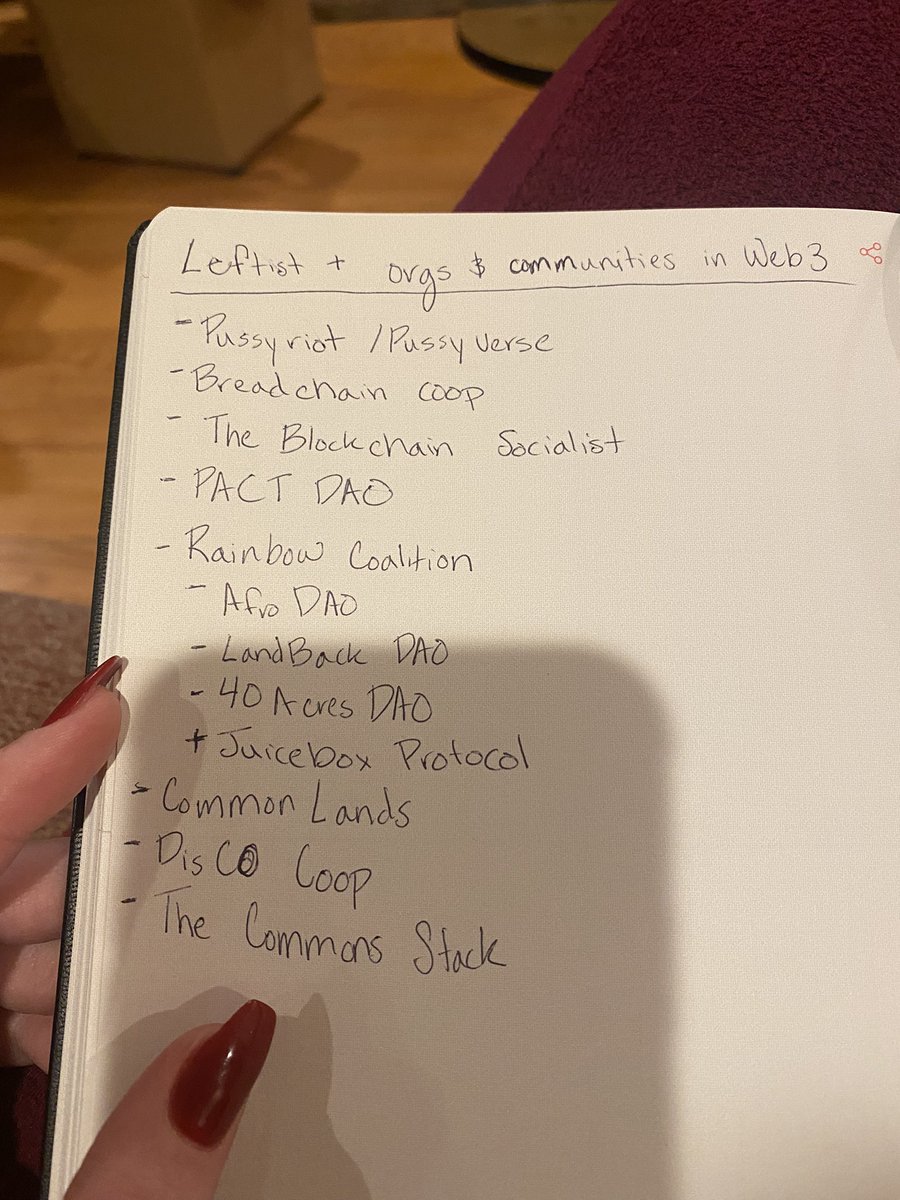 Leftist + orgs $ communities in Web3
- Pussyriot / Pussyverse
- Breadchain coop
- The Blockchain Socialist
- PACT DAO
- Rainbow Coalition
- Afro DAO
- LandBack DAO
- 40 Acres DAO
+ Juicebox Protocol
- Common Lands
- DisCO Coop
- The Commons Stack